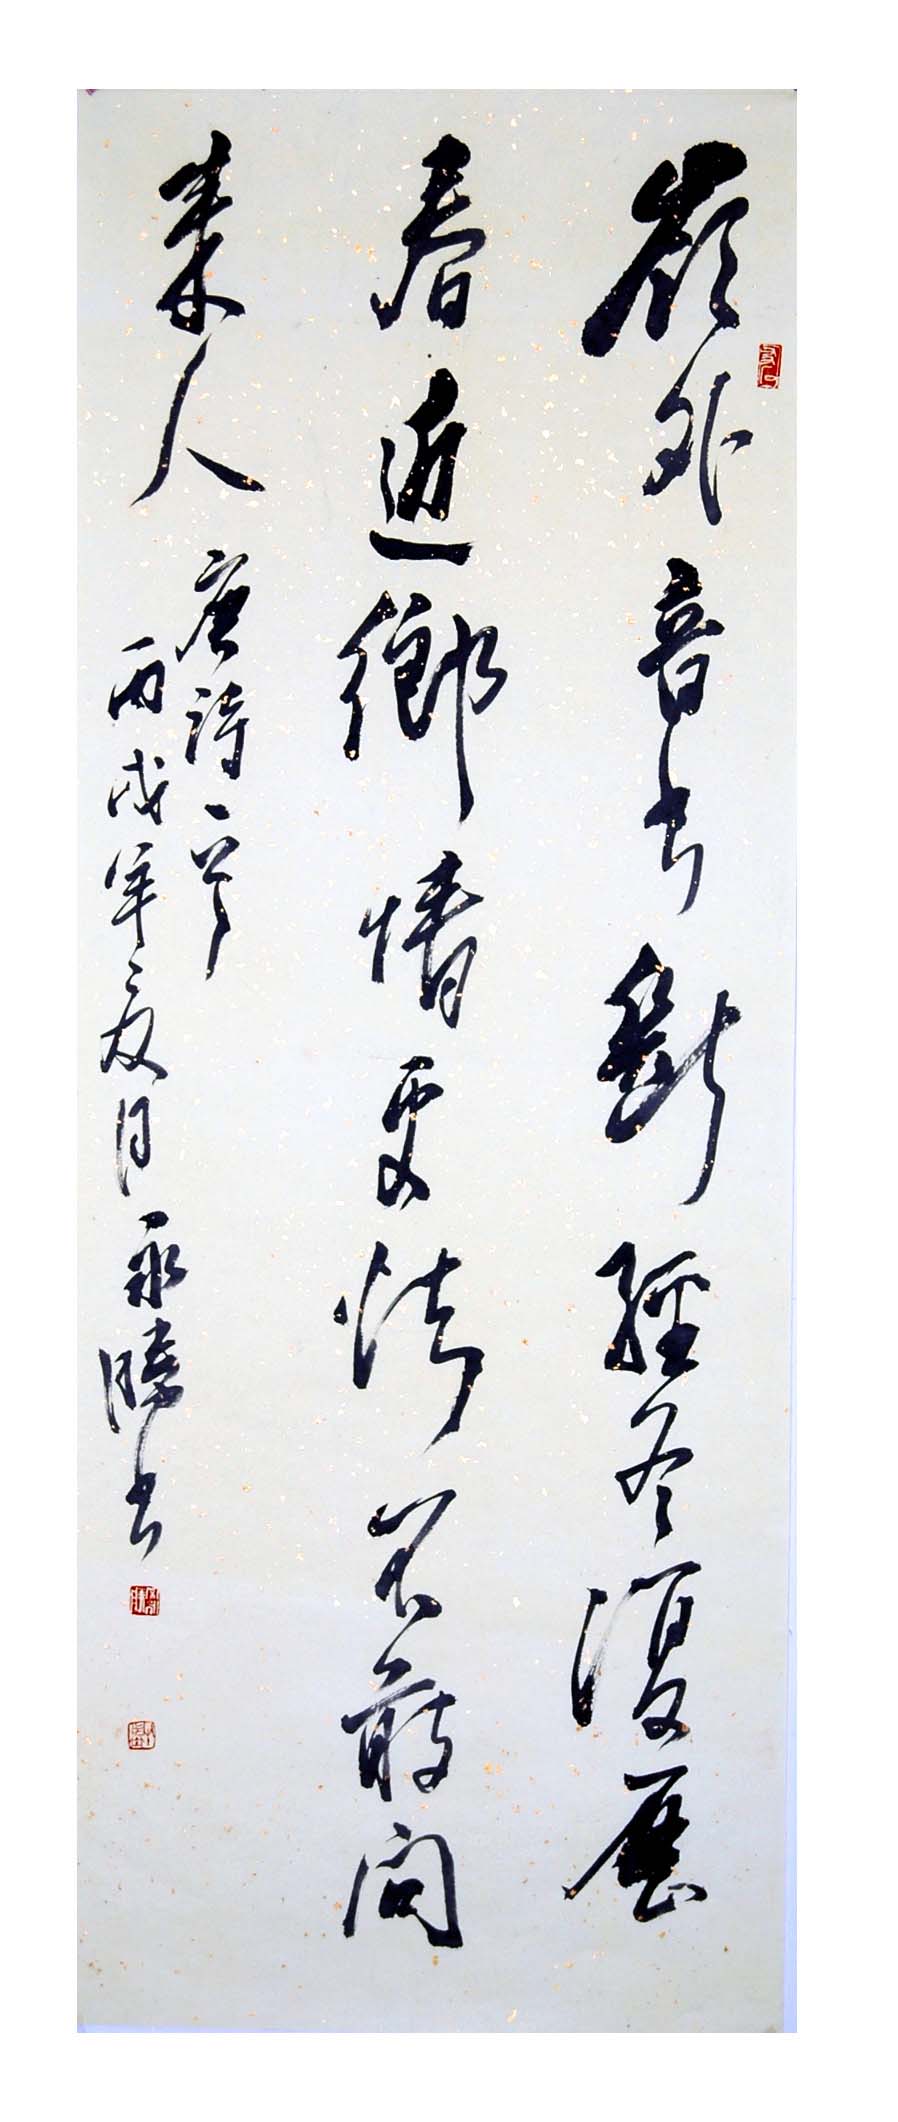 嶺外音書斷經冬復歷
春近鄉情更怯不敢問
來人
唐詩一首
丙戌年夏月永勝書